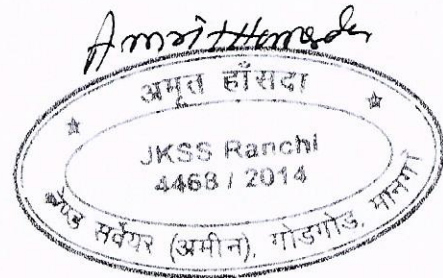 Amrit Hansda
अमृत हाँसदा
JKSS Ranchi
4468 / 2014
लैण्ड सर्वेयर (अमीन), गोडगोड, मानगो